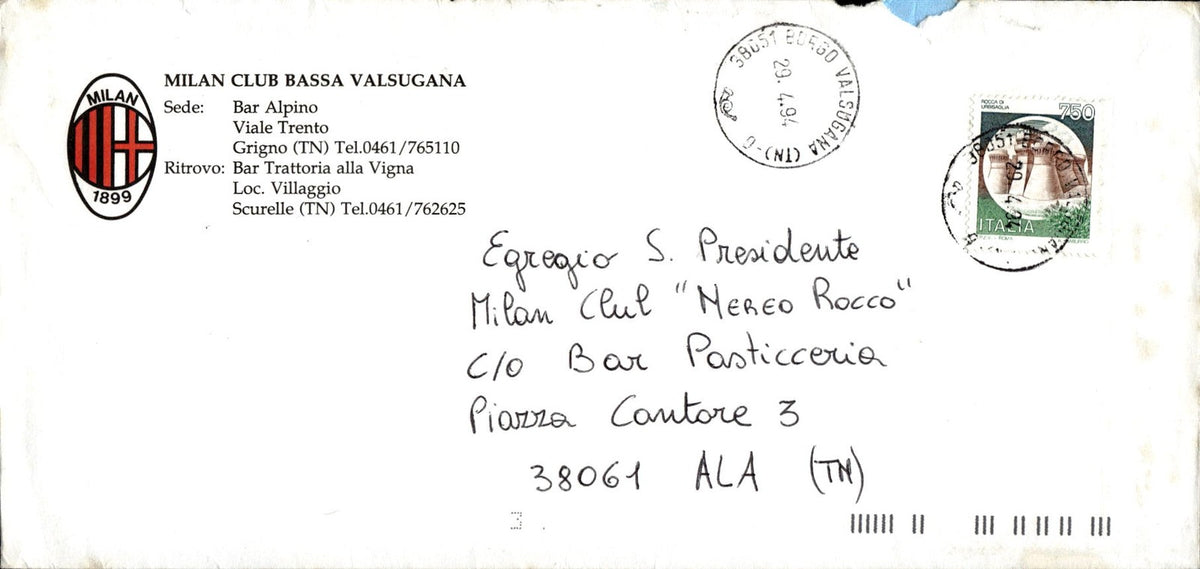 MILAN
1899
MILAN CLUB BASSA VALSUGANA
Sede: Bar Alpino
Viale Trento
Grigno (TN) Tel.0461/765110
Ritrovo: Bar Trattoria alla Vigna
Loc. Villaggio
Scurelle (TN) Tel.0461/762625
38051 BORGO VALSUGANA (TN)
29.4.94
ROCCA DI
URBISAGLIA
750
ITALIA
38051 BORGO
29.4.94
Egregio S. Presidente
Milan Club "Nereo Rocco"
C/o Bar Pasticceria
Piazza Cantore 3
38061 ALA (TN)
3